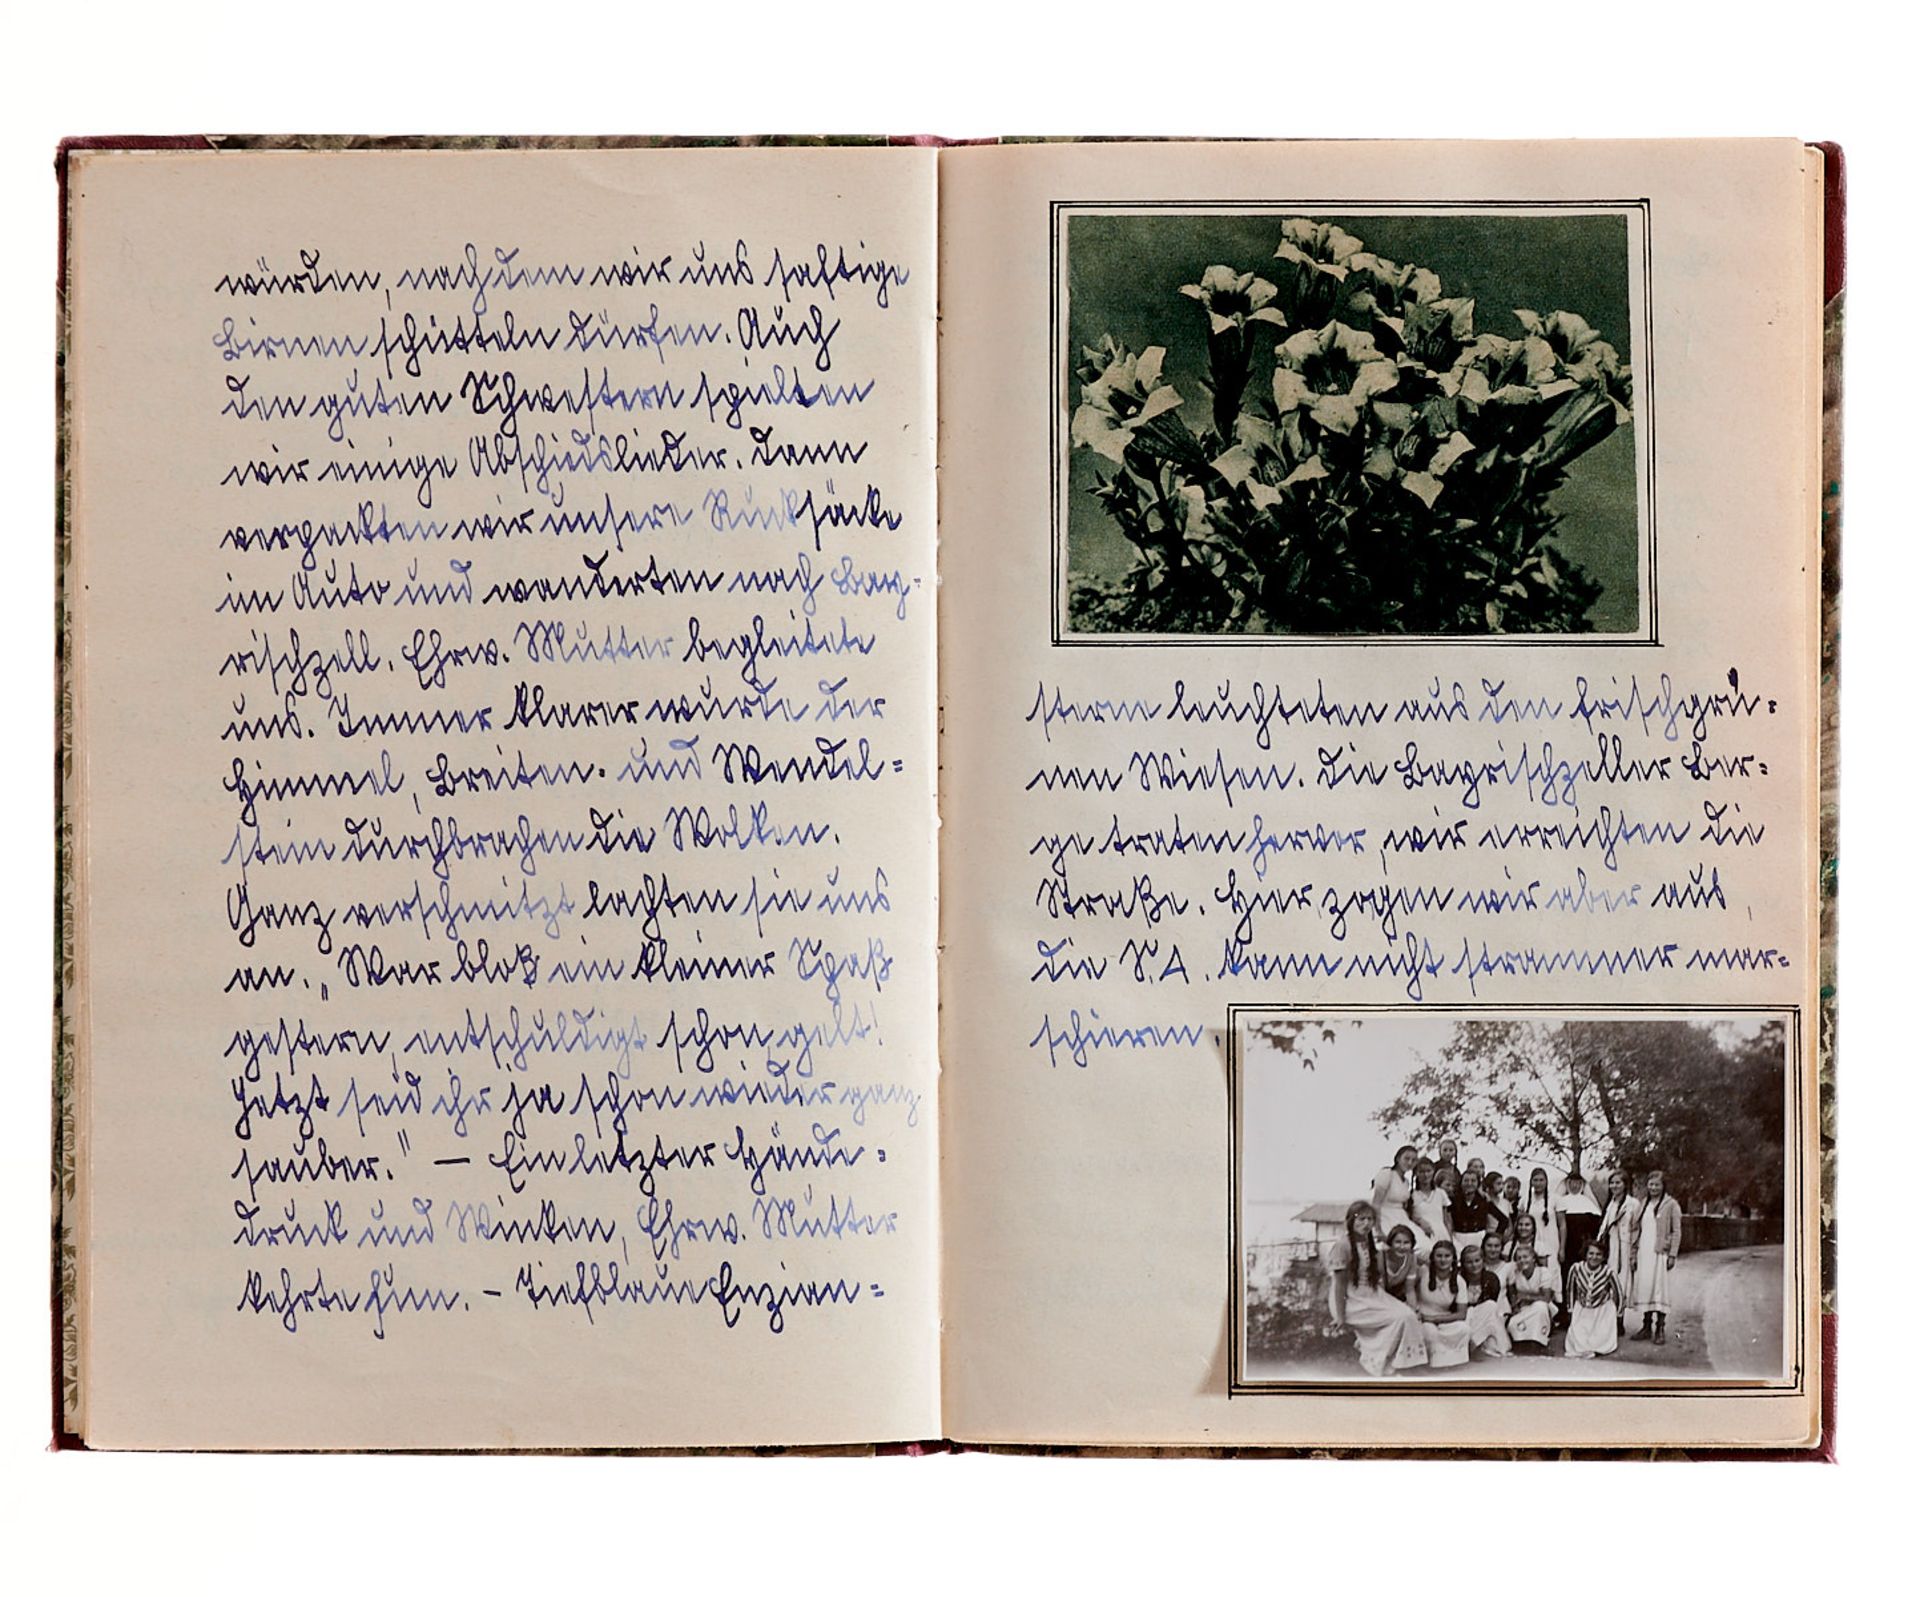 würden, nachdem wir uns saftige
Birnen schütteln dürfen. Auch
den guten Schwestern spielten
wir einige Abschiedslieder. Dann
verpackten wir unsere Rucksäcke
im Auto und wanderten nach Bay=
rischzell. Ehrw. Mutter begleitete
uns. Immer klarer wurde der
Himmel, Breiten- und Wendel=
stein durchbrachen die Wolken.
Ganz verschmitzt lachten sie uns
an. „War bloß ein kleiner Spaß
gestern, entschuldigt schon, gelt!
Jetzt seid ihr ja schon wieder ganz
sauber." — Ein letzter Hände=
druck und Winken, Ehrw. Mutter
kehrte heim. – Tiefblaue Enzian=
sterne leuchteten aus den frischgrü=
nen Wiesen. Die Bayrischzeller Ber=
ge traten hervor, wir erreichten die
Straße. Hier zogen wir aber aus,
die S.A. kann nicht strammer mar=
schieren.